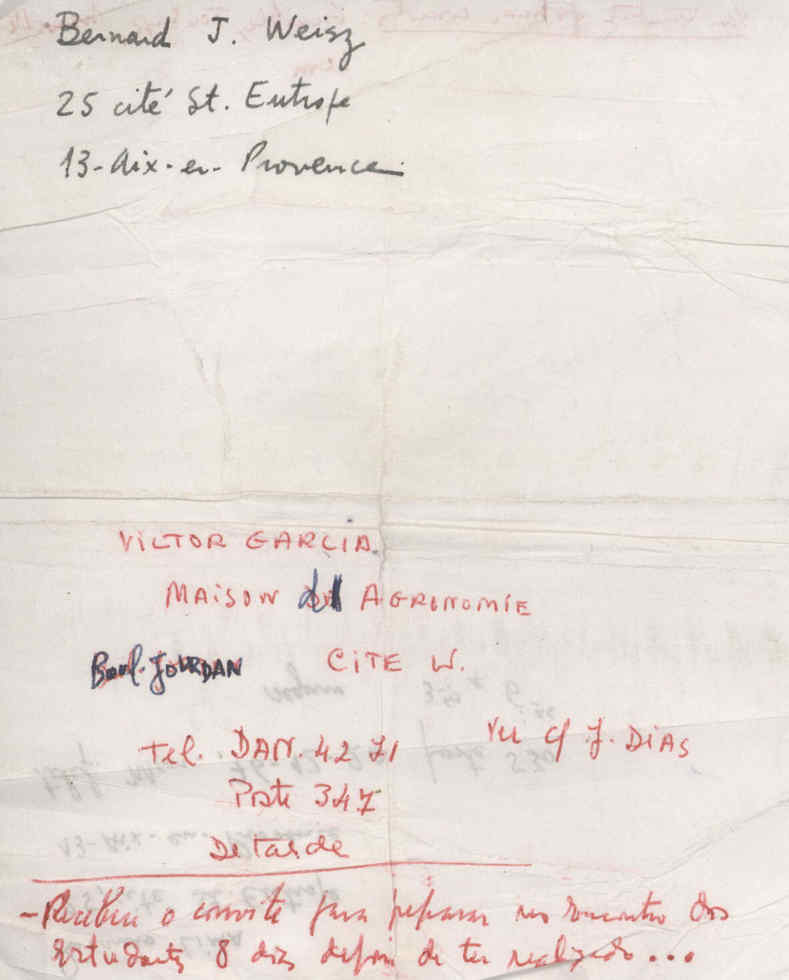 Bernard J. Weisz
25 cité St. Eutrope
13-Aix-en-Provence
VICTOR GARCIA
MAISON d AGRONOMIE
Boul. JOURDAN CITE U.
Tel. DAN. 42 71 Vu c/ J. DIAS
Poste 347
De tarde
- Recebeu o convite para preparar encontro dos
estudantes 8 dias depois de ter realizado...